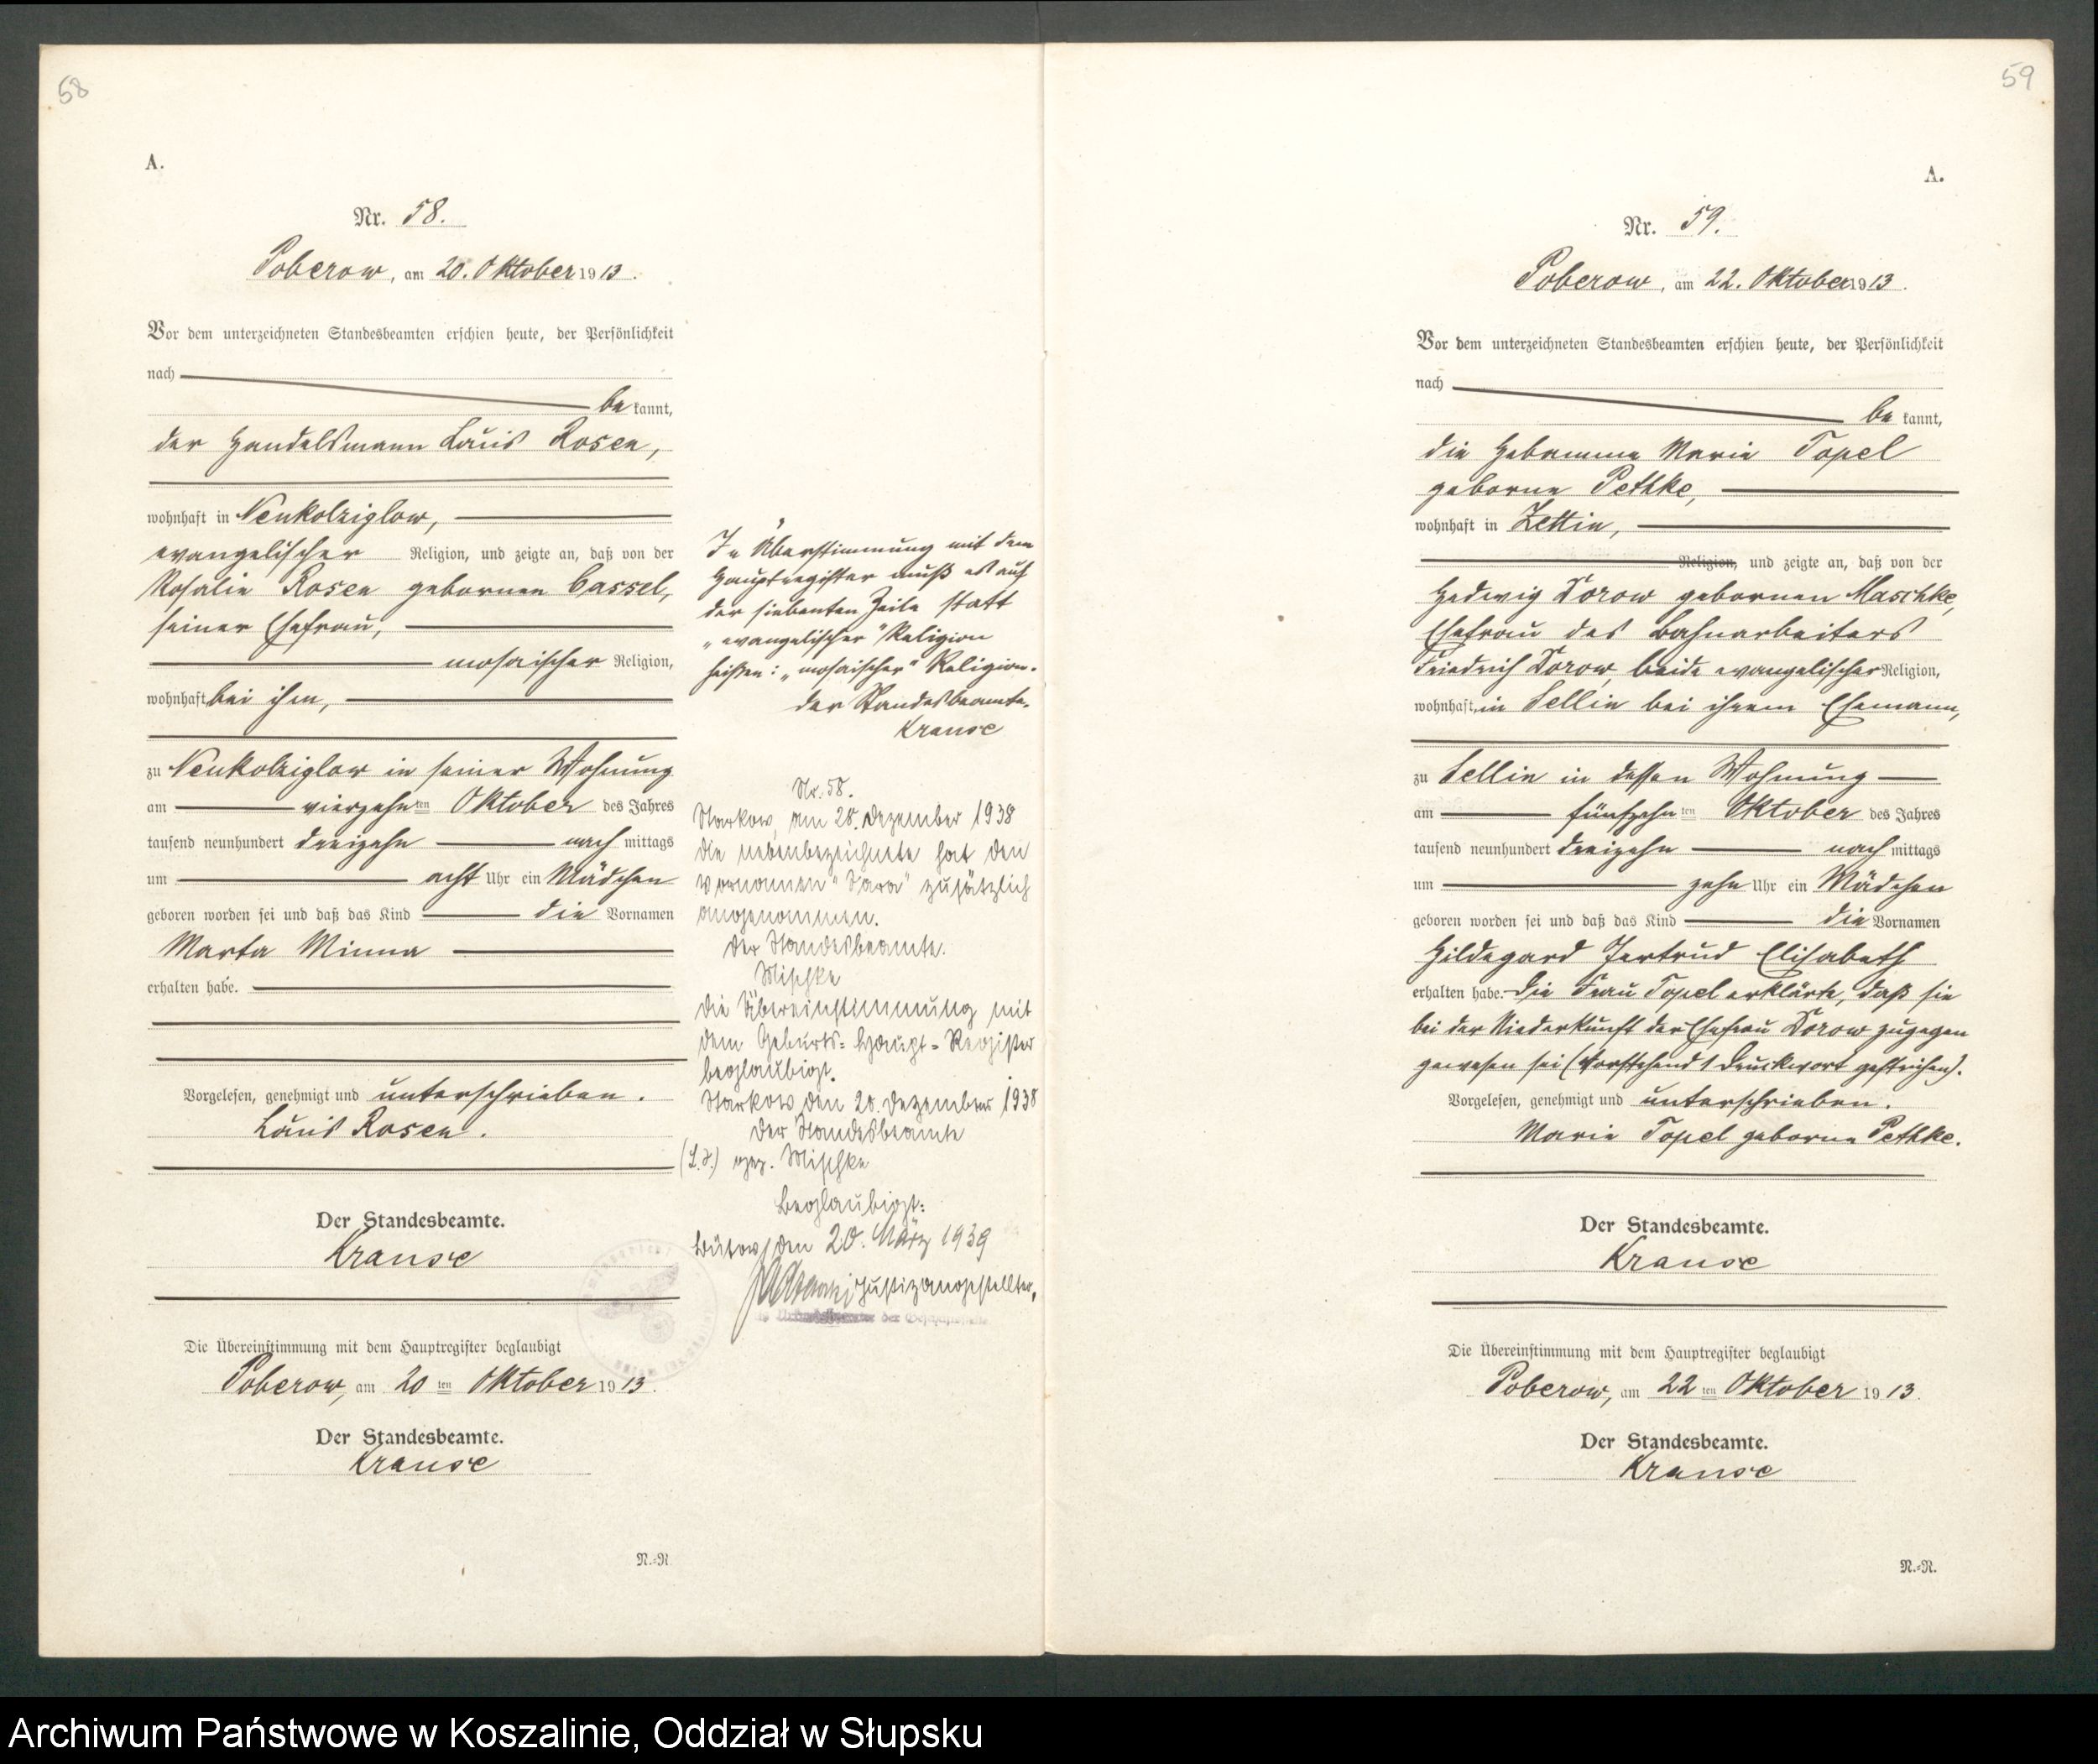 58
A.
Nr. 58.
Poberow, am 20. Oktober 1913.
Vor dem unterzeichneten Standesbeamten erschien heute, der Persönlichkeit
nach
be kannt,
der Handelsmann Louis Rosen,
wohnhaft in Neukolziglow,
evangelischer Religion, und zeigte an, daß von der
Rosalie Rosen gebornen Cassel,
seiner Ehefrau,
mosaischer Religion,
wohnhaft bei ihm,
zu Neukolziglow in seiner Wohnung
am vierzehnten Oktober des Jahres
tausend neunhundert dreizehn nach mittags
um acht Uhr ein Mädchen
geboren worden sei und daß das Kind die Vornamen
Marta Minna
erhalten habe.
Vorgelesen, genehmigt und unterschrieben.
Louis Rosen.
Der Standesbeamte.
Krause
Die Übereinstimmung mit dem Hauptregister beglaubigt
Poberow, am 20 ten Oktober 1913.
Der Standesbeamte.
Krause
N.=R
In Überstimmung mit dem
Hauptregister muß es auf
der siebenten Zeile statt
„evangelischer" Religion
heißen: „mosaischer" Religion.
Der Standesbeamte.
Krause
Nr. 58.
Starkow, am 28. Dezember 1938
Die nebenbezeichnete hat den
Vornamen "Sara" zusätzlich
angenommen.
Der Standesbeamte.
Mischke
Die Übereinstimmung mit
dem Geburts=Haupt=Register
beglaubigt.
Starkow, den 28. Dezember 1938
Der Standesbeamte
(L.S.) gez. Mischke
Beglaubigt:
Bütow, den 20. März 1939
Justizangestellter,
der Geschäftsstelle
59
A.
Nr. 59.
Poberow, am 22. Oktober 1913.
Vor dem unterzeichneten Standesbeamten erschien heute, der Persönlichkeit
nach
be kannt,
die Hebamme Marie Topel
geborne Pethke,
wohnhaft in Zettin,
Religion, und zeigte an, daß von der
Hedwig Dorow gebornen Maschke,
Ehefrau des Bahnarbeiters
Friedrich Dorow, beide evangelischer Religion,
wohnhaft in Sellin bei ihrem Ehemann,
zu Sellin in dessen Wohnung
am fünfzehn ten Oktober des Jahres
tausend neunhundert dreizehn nach mittags
um zehn Uhr ein Mädchen
geboren worden sei und daß das Kind die Vornamen
Hildegard Gertrud Elisabeth
erhalten habe. Die Frau Topel erklärte, daß sie
bei der Niederkunft der Ehefrau Dorow zugegen
gewesen sei (Vorstehend 1 Druckwort gestrichen).
Vorgelesen, genehmigt und unterschrieben.
Marie Topel geborne Pethke.
Der Standesbeamte.
Krause
Die Übereinstimmung mit dem Hauptregister beglaubigt
Poberow, am 22 ten Oktober 1913.
Der Standesbeamte.
Krause
N.=R.
Archiwum Państwowe w Koszalinie, Oddział w Słupsku